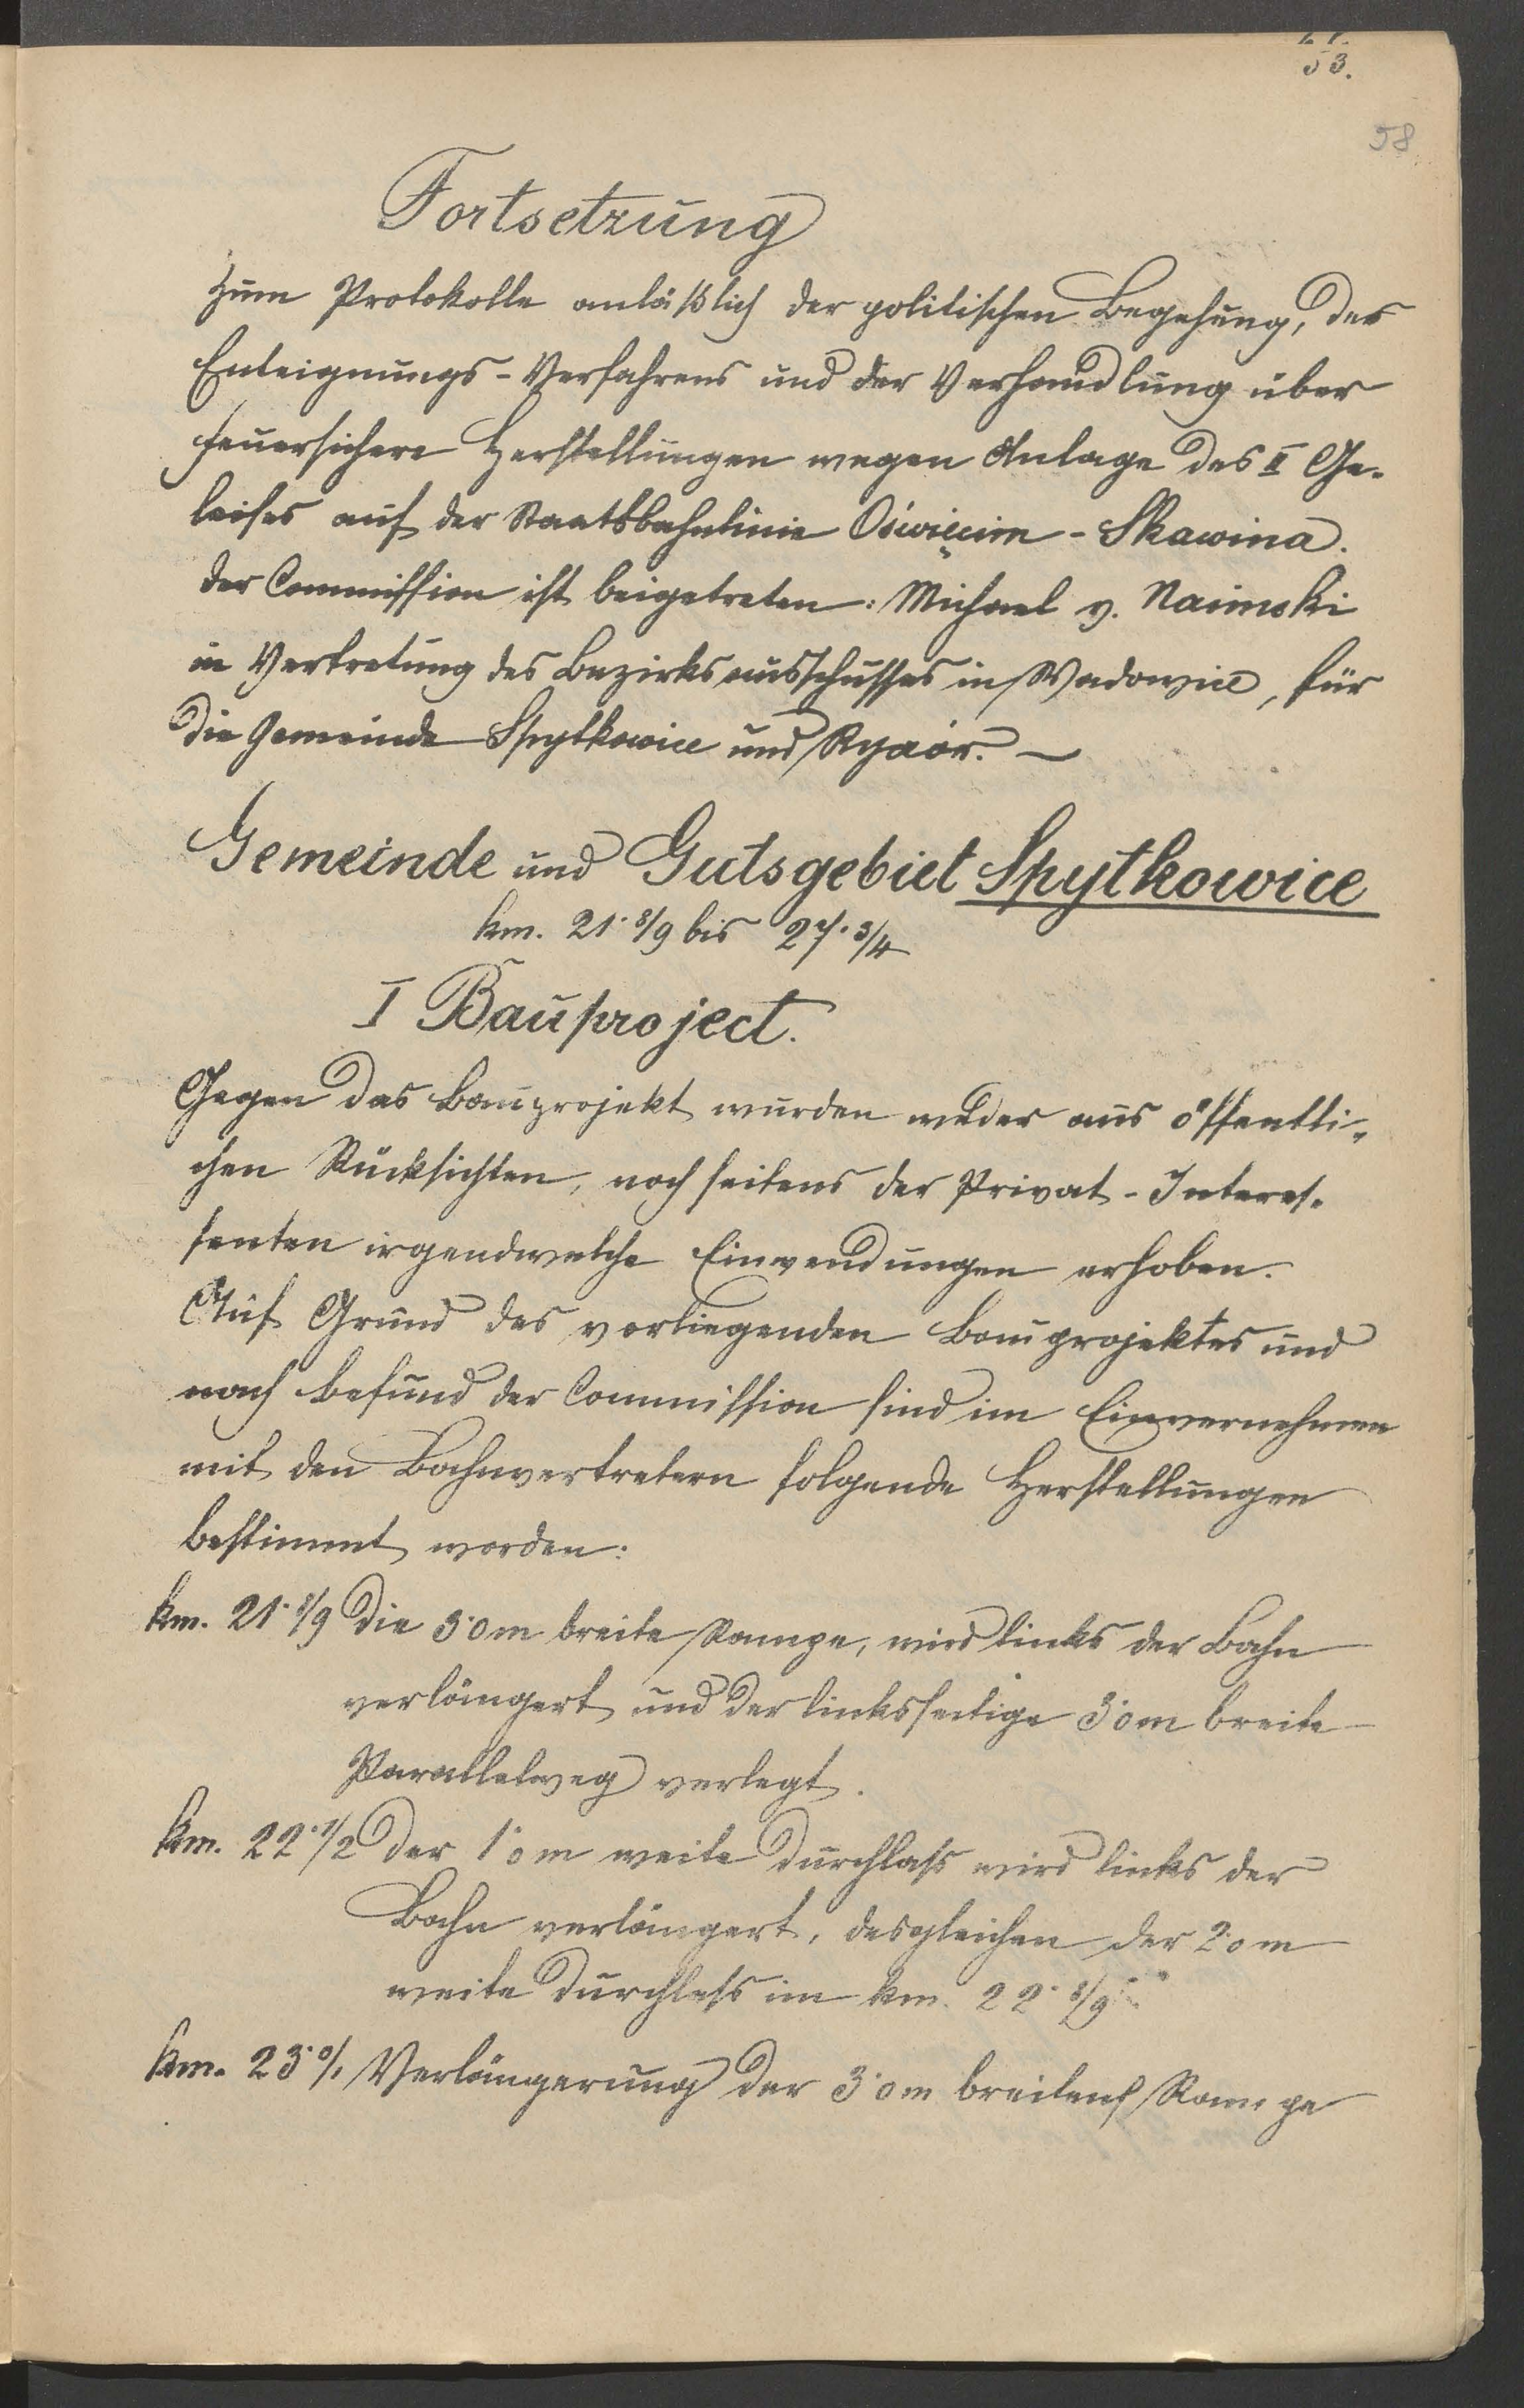 53.
58
Fortsetzung
zum Protokolle anläßlich der politischen Begehung, des
Enteignungs-Verfahrens und der Verhandlung über
feuersichere Herstellungen wegen Anlage des II Ge-
leises auf der Staatsbahnlinie Oświęcim - Skawina.
Der Commission ist beigetreten: Michael v. Naimski
in Vertretung des Bezirksausschusses in Wadowice, für
die Gemeinde Spytkowice und Ryczór. —
Gemeinde und Gutsgebiet Spytkowice
km. 21· 8/9 bis 27· 3/4
I Bauproject.
Gegen das Bauprojekt wurden weder aus öffentli-
chen Rücksichten, noch seitens der Privat-Interes-
senten irgendwelche Einwendungen erhoben.
Auf Grund des vorliegenden Bauprojektes und
nach Befund der Commission sind im Einvernehmen
mit den Bahnvertretern folgende Herstellungen
bestimmt worden:
km. 21· 8/9 Die 3·0m breite Rampe, wird links der Bahn
verlängert und der linksseitige 3·0m breite
Parallelweg verlegt.
km. 22· 1/2 Der 1·0m weite Durchlass wird links der
Bahn verlängert, desgleichen der 2·0m
weite Durchlass im km. 22· 8/9
km. 23· 0/1 Verlängerung der 3·0m breiten Rampe